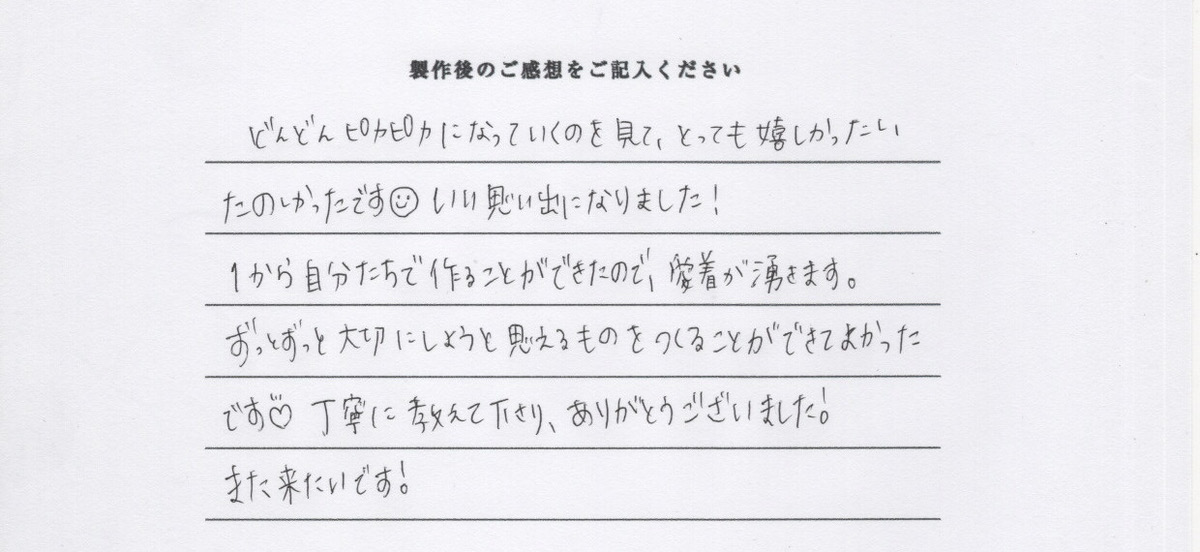 製作後のご感想をご記入ください
どんどんピカピカになっていくのを見て、とっても嬉しかったい
たのしかったです☺ いい思い出になりました！
1から自分たちで作ることができたので、愛着が湧きます。
ずっとずっと大切にしようと思えるものをつくることができてよかった
です♡ 丁寧に教えて下さり、ありがとうございました！
また来たいです！